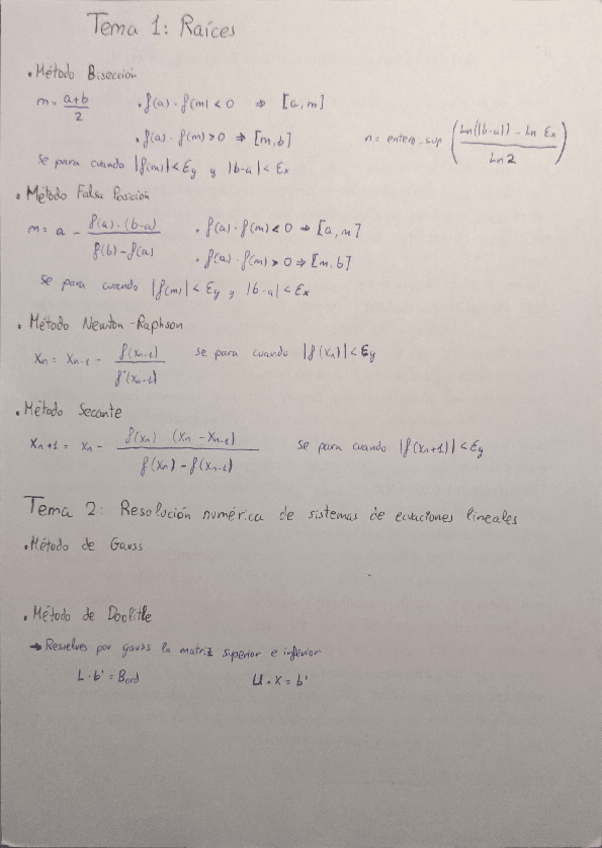 Tema 1: Raíces
• Método Bisección
m = (a+b)/2   • f(a) · f(m) < 0 ⇒ [a, m]
• f(a) · f(m) > 0 ⇒ [m, b]   n = entero_sup ((Ln(|b-a|) - Ln Ex)/Ln 2)
Se para cuando |f(m)| < Ey y |b-a| < Ex
• Método Falsa Posición
m = a - (f(a) · (b-a))/(f(b) - f(a))   • f(a) · f(m) < 0 ⇒ [a, m]
• f(a) · f(m) > 0 ⇒ [m, b]
Se para cuando |f(m)| < Ey y |b-a| < Ex
• Método Newton-Raphson
Xn = Xn-1 - f(Xn-1)/f'(Xn-1)   Se para cuando |f(Xn)| < Ey
• Método Secante
Xn+1 = Xn - (f(Xn) (Xn - Xn-1))/(f(Xn) - f(Xn-1))   Se para cuando |f(Xn+1)| < Ey
Tema 2: Resolución numérica de sistemas de ecuaciones lineales
• Método de Gauss
• Método de Doolitle
→ Resuelves por gauss la matriz superior e inferior
L · b' = Bord   U · X = b'